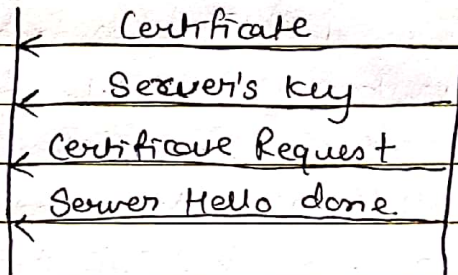 Certificate
Server's key
Certificate Request
Server Hello done